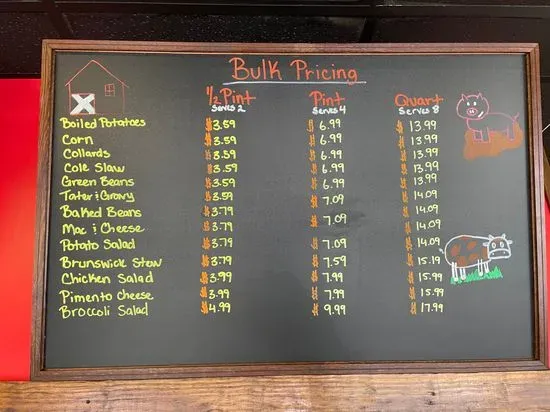 Bulk Pricing
1/2 Pint Pint Quart
Serves 2 Serves 4 Serves 8
Boiled Potatoes $3.59 $6.99 $13.99
Corn $3.59 $6.99 $13.99
Collards $3.59 $6.99 $13.99
Cole Slaw $3.59 $6.99 $13.99
Green Beans $3.59 $6.99 $13.99
Tater & Gravy $3.59 $7.09 $14.09
Baked Beans $3.79 $7.09 $14.09
Mac & Cheese $3.79 $14.09
Potato Salad $3.79 $7.09 $14.09
Brunswick Stew $3.79 $7.59 $15.19
Chicken Salad $3.99 $7.99 $15.99
Pimento Cheese $3.99 $7.99 $15.99
Broccoli Salad $4.99 $9.99 $17.99